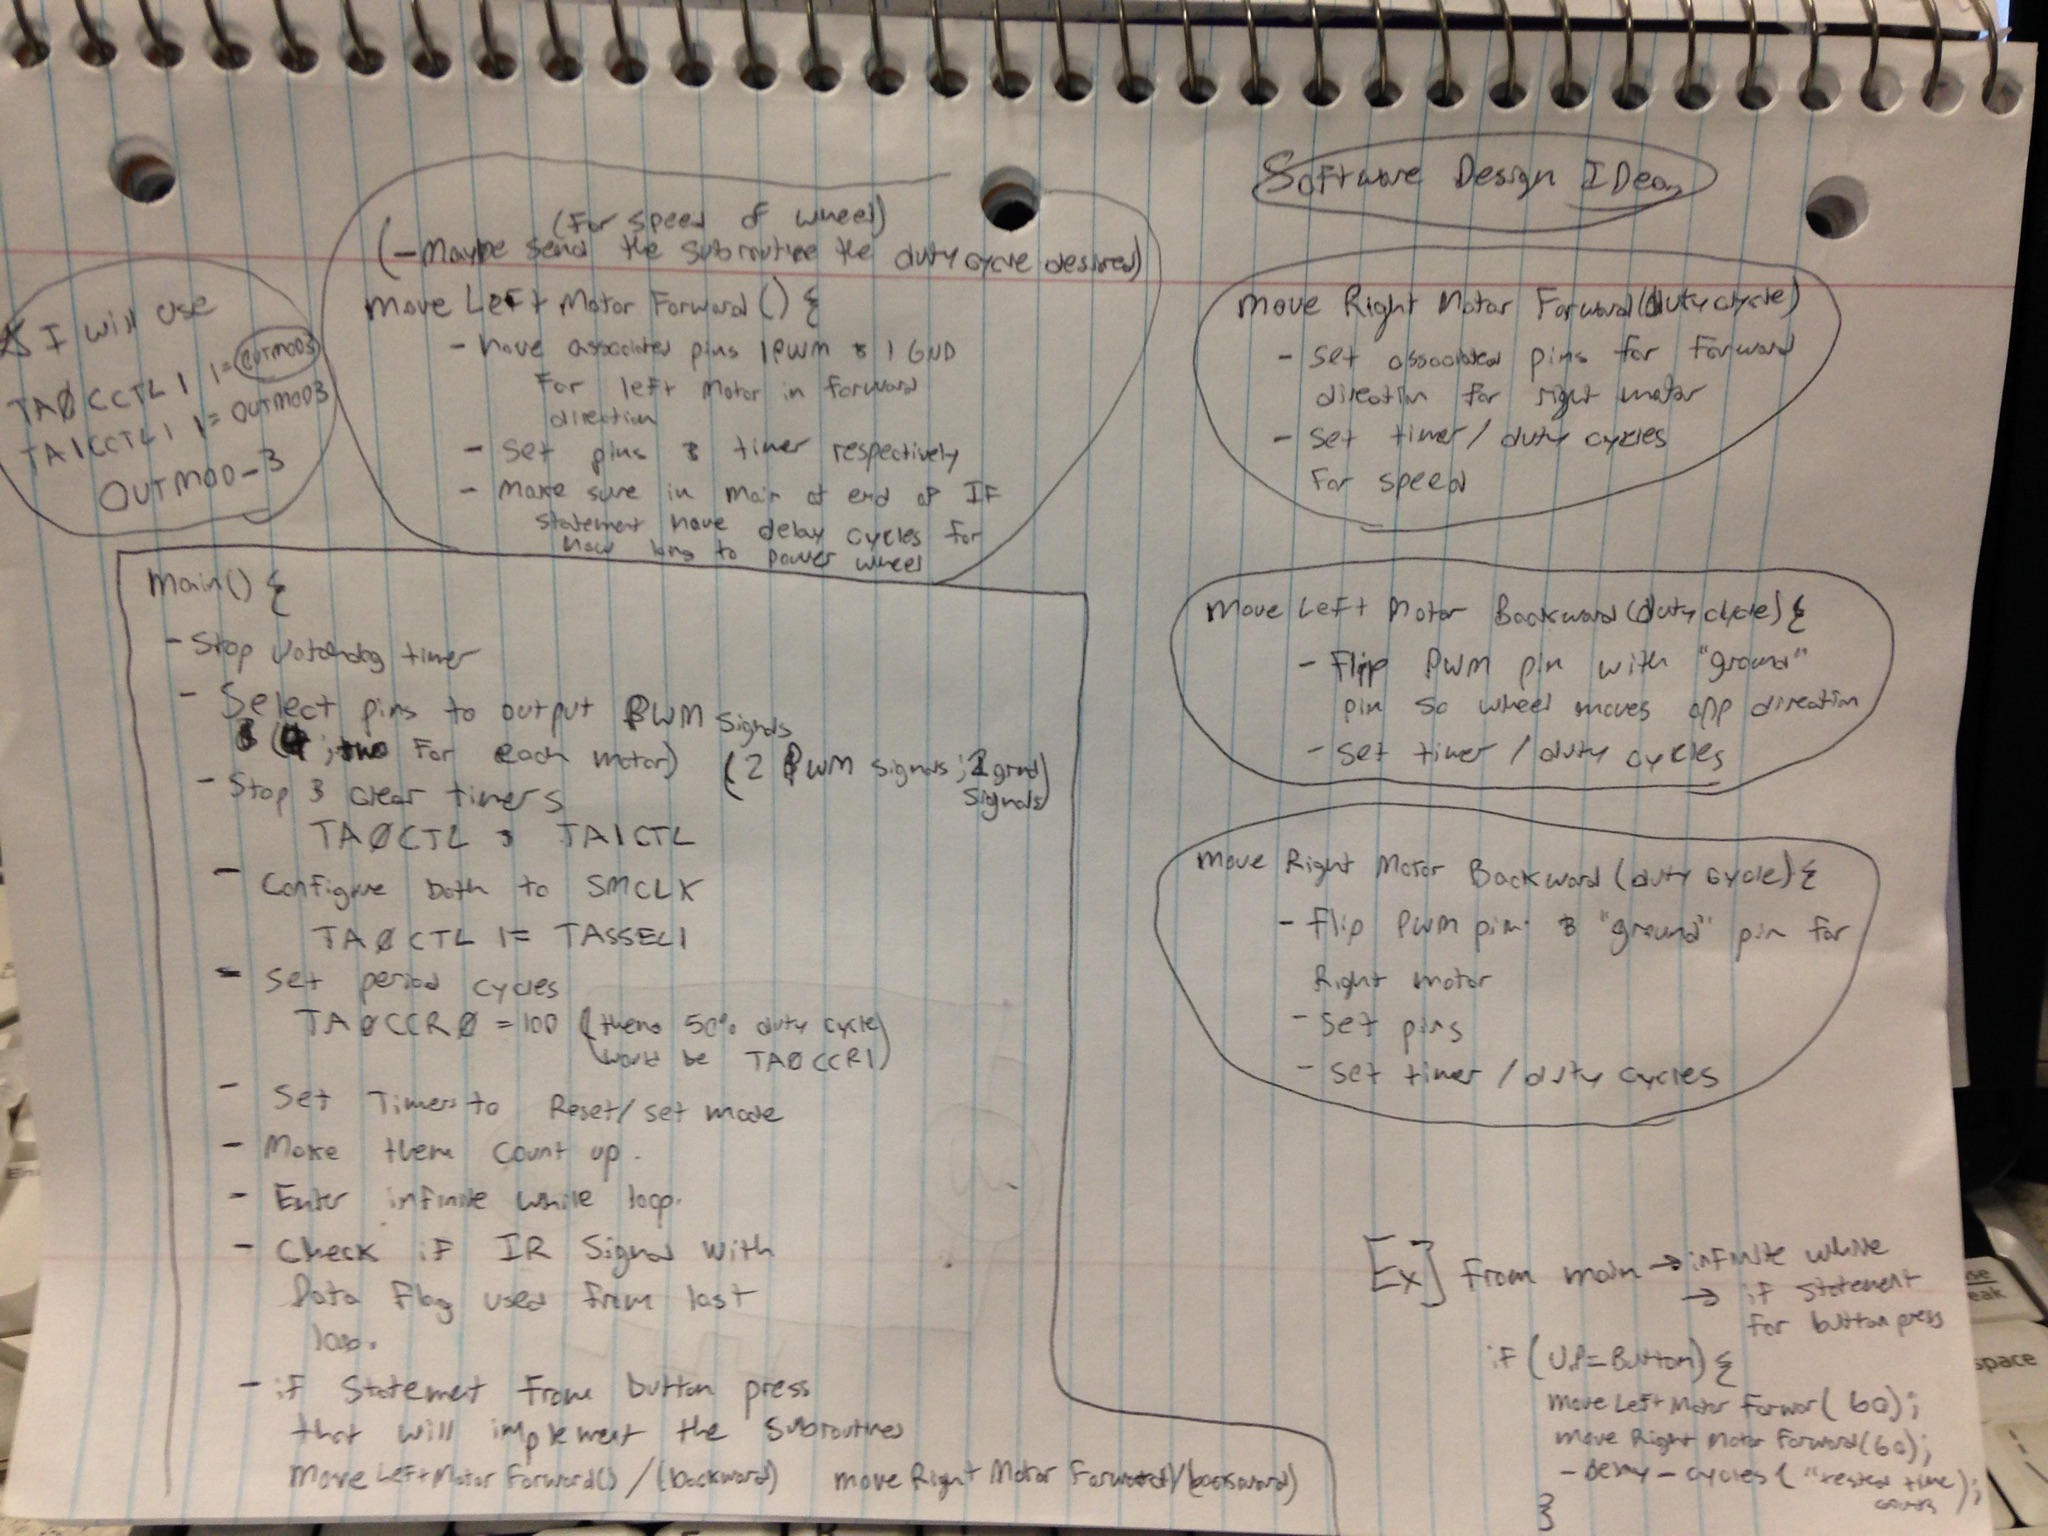 Software Design IDeas
(For speed of wheel)
(-Maybe send the subroutine the duty cycle desired)
move Left Motor Forward () {
- have associated pins 1 PWM & 1 GND
For left motor in forward
direction
- Set pins & timer respectively
- Make sure in main at end of IF
statement have delay cycles for
how long to power wheel
* I will use
TAØCCTL1 |= OUTMOD3
TA1CCTL1 |= OUTMOD3
OUTMOD-3
main() {
- Stop watchdog timer
- Select pins to output PWM signals
& (4; two For each motor) (2 PWM signals; 2 grnd
signals)
- Stop & clear timers
TAØCTL & TA1CTL
- Configure both to SMCLK
TAØCTL |= TASSEL1
- Set period cycles
TAØCCRØ = 100 (then 50% duty cycle
would be TAØCCR1)
- Set Timers to Reset/set mode
- Make them count up.
- Enter infinite while loop.
- Check if IR Signal with
Data Flag used from last
lab.
- if Statement From button press
that will implement the subroutines
move Left Motor Forward() / (backward) move Right Motor Forward / (backward)
move Right Motor Forward (duty cycle)
- Set associated pins for forward
direction for right motor
- Set timer / duty cycles
For speed
Move Left Motor Backward (duty cycle) {
- Flip PWM pin with "ground"
pin so wheel moves opp direction
- Set timer / duty cycles
move Right Motor Backward (duty cycle) {
- Flip PWM pin & "ground" pin for
Right motor
- Set pins
- Set timer / duty cycles
[Ex] from main → infinite while
→ if statement
for button press
if (UP=Button) {
move Left Motor Forwar(60);
move Right Motor Forward(60);
- delay - cycles ("tested time
);
}